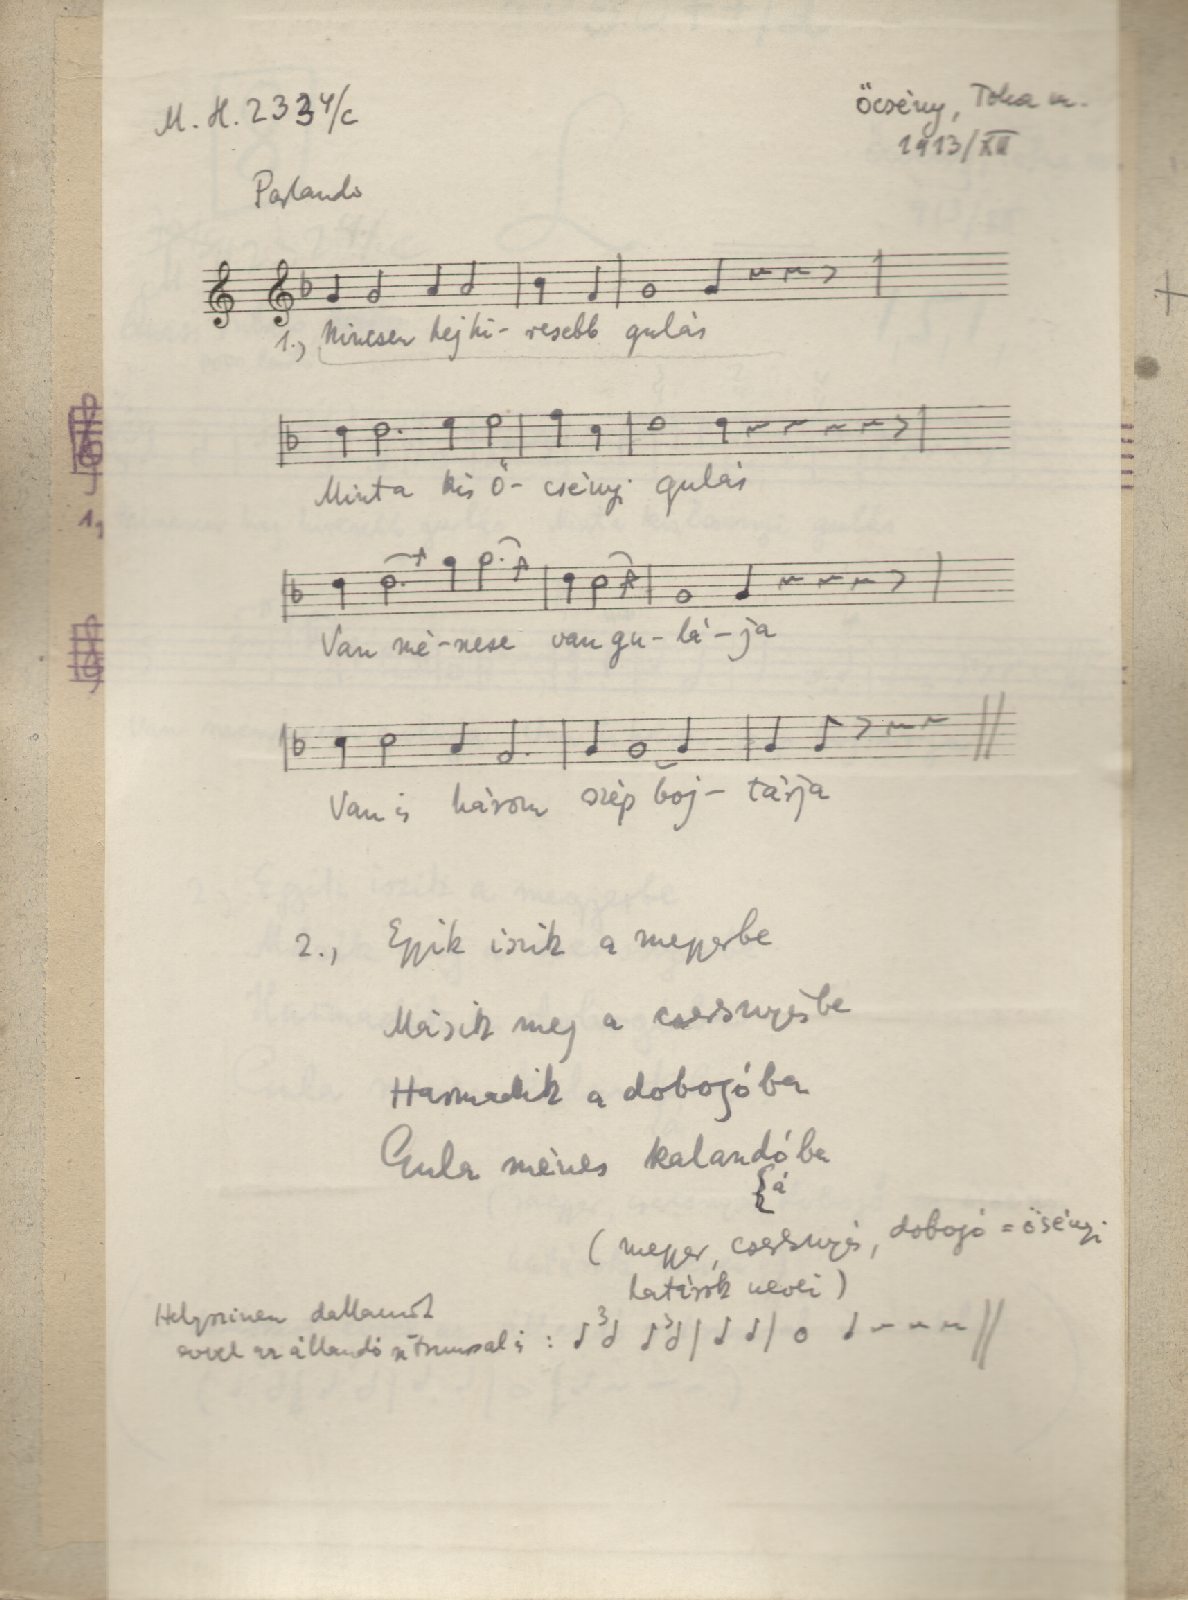 M. H. 2334/c
Őcsény, Tolna m.
1913/XII
Parlando
1., Nincsen hejhi- resebb gulás
Minta kis ő- csényi gulás
Van mé-nese van gu-lá-ja
Van is három szép boj- tárja
2., Egyik iszik a meggyerbe
Másik meg a cseresnyésbe
Harmadik a dobogóba
Gula ménes kalandóba
á
(meggyer, cseresnyés, dobogó = ősényi
határok nevei)
Helyszinen dallamát
evvel az állandó ritmussal is :
1,